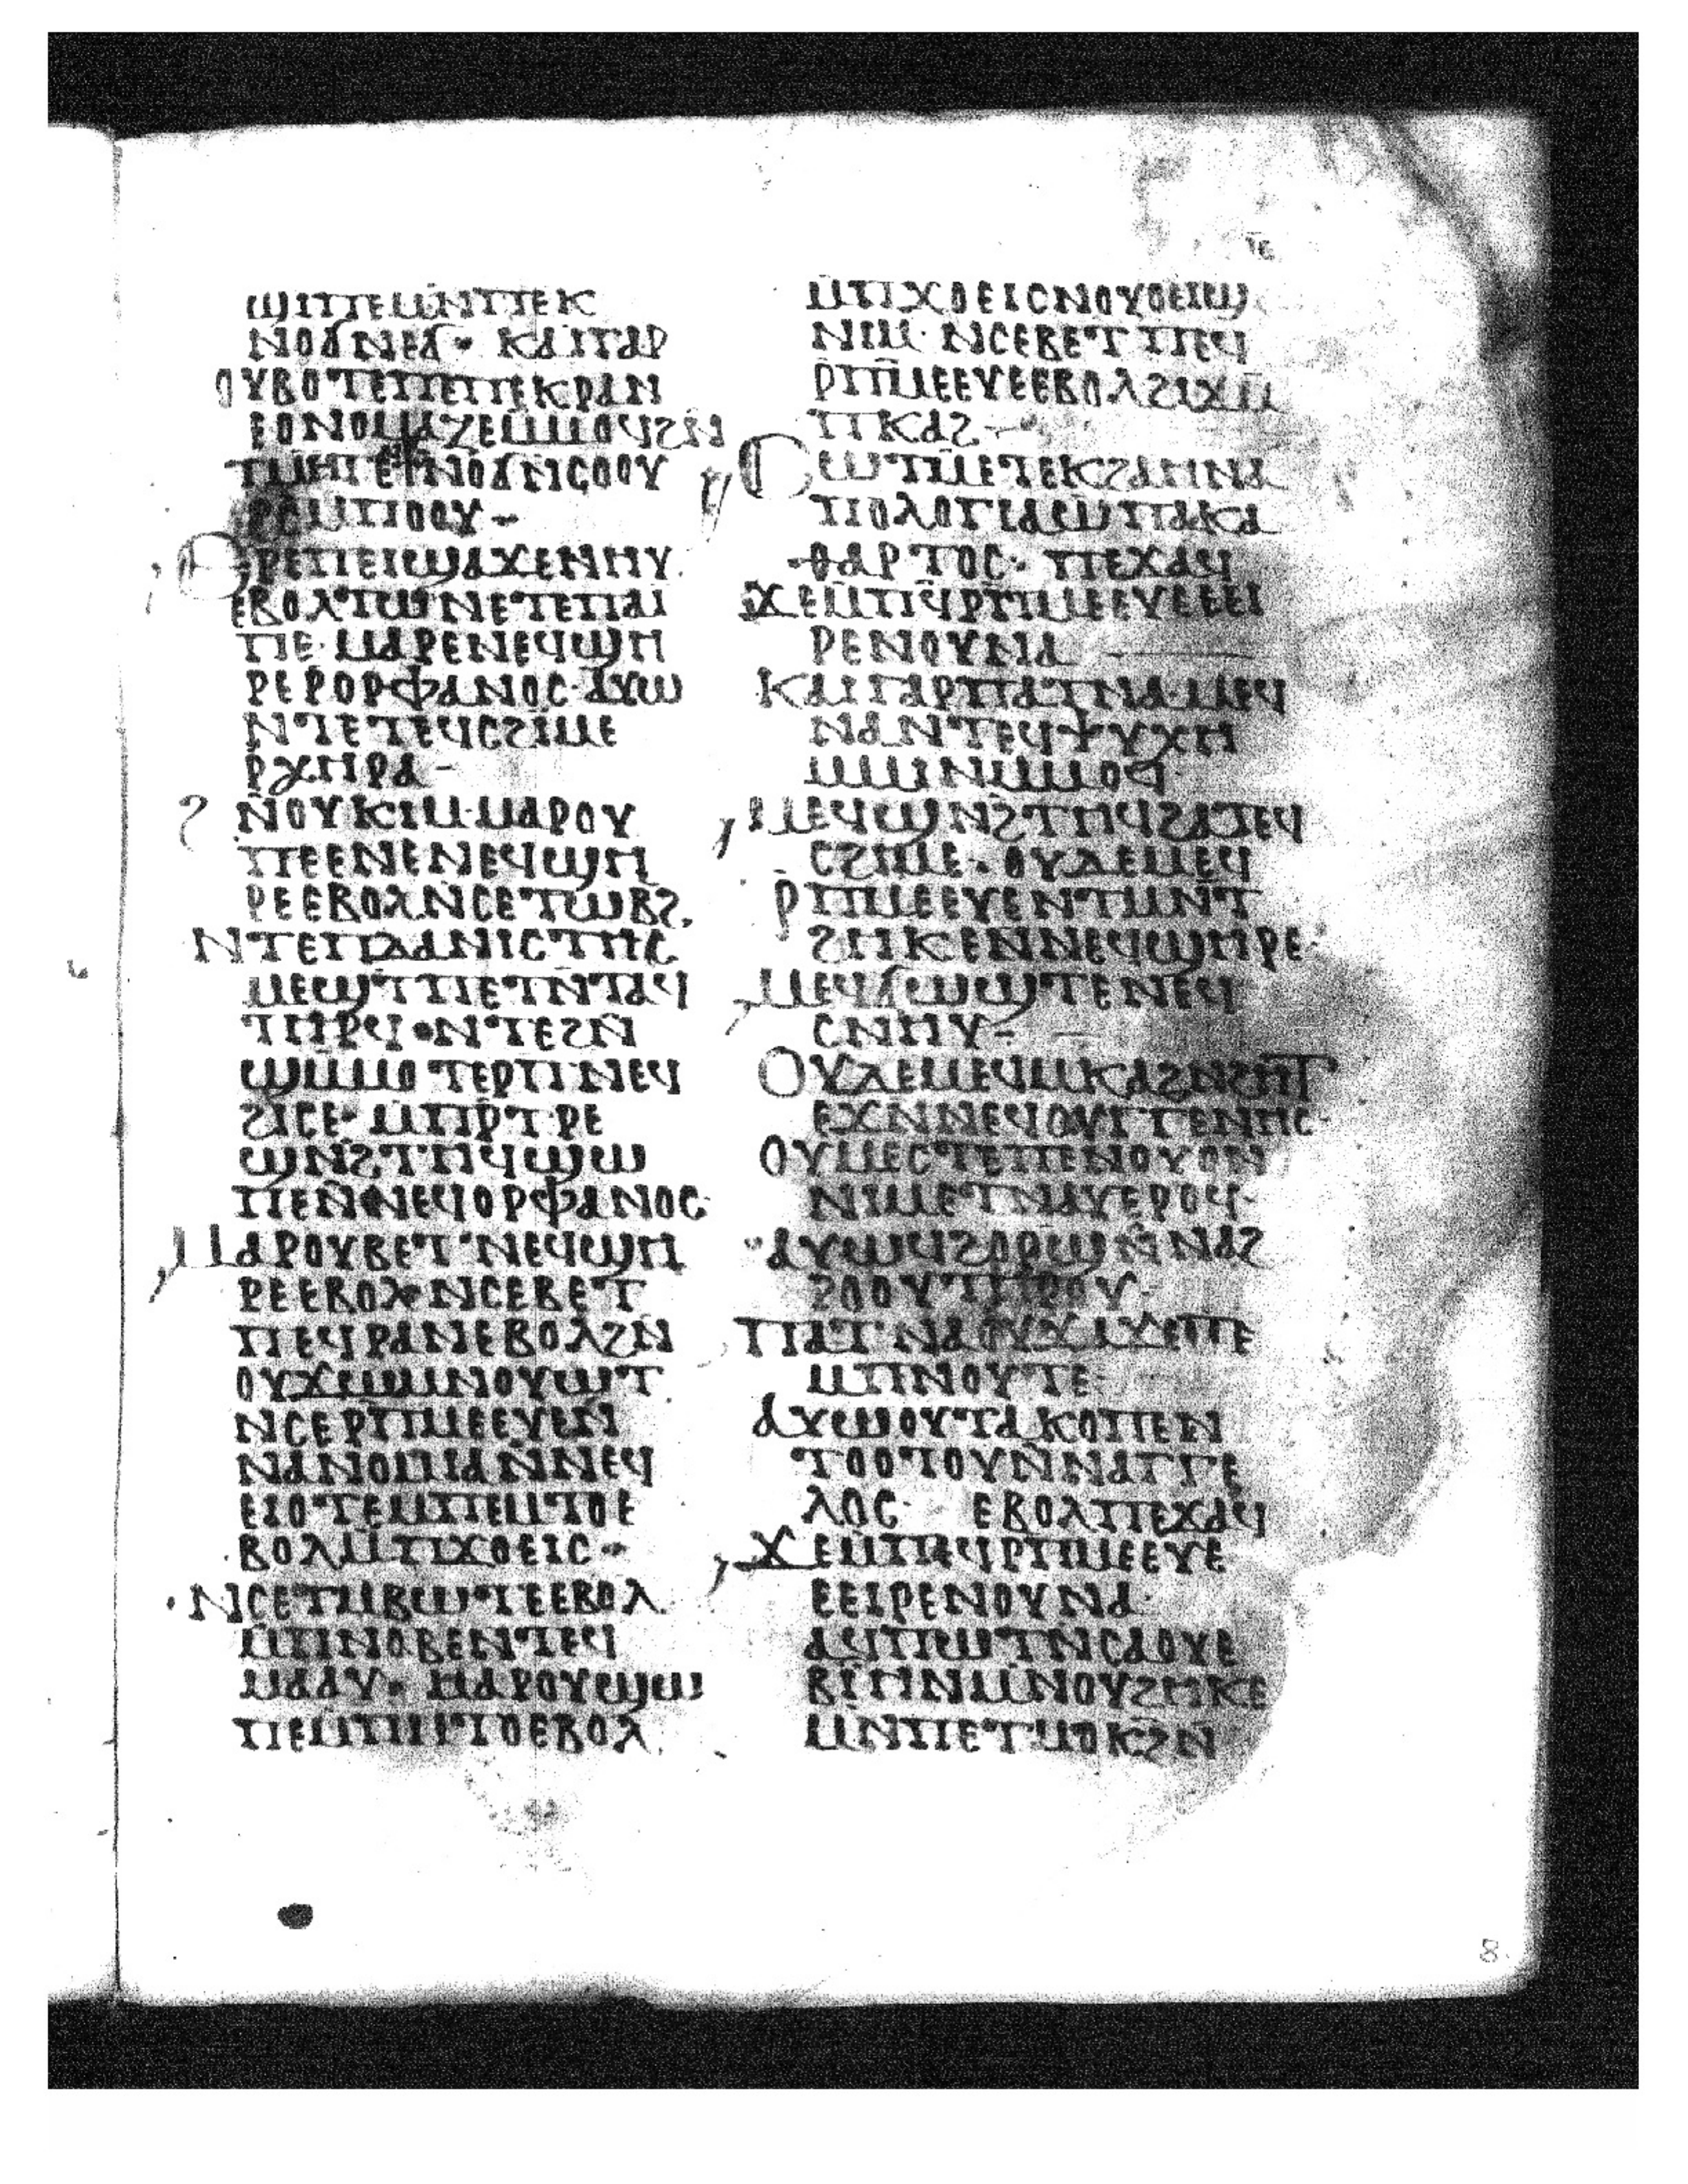 ⲓⲉ
ϣⲓⲡⲉⲙⲛ̄ⲡⲉⲕ
ⲛⲟϭⲛⲉϭ· ⲕⲁⲓⲅⲁⲣ
ⲟⲩⲃⲟⲧⲉⲡⲉⲡⲉⲕⲣⲁⲛ
ⲉⲟⲛⲟⲙⲁⲍⲉⲙⲙⲟϥϩⲛ̄
ⲧⲙⲏⲧⲉⲛ̄ⲛⲟϭⲛ̄ⲥⲟⲟⲩ
ⲣⲉⲡⲉⲓϣⲁϫⲉⲛⲏⲩ
ⲉⲃⲟⲗⲧⲱⲛⲉⲧⲉⲡⲁⲓ
ⲡⲉ· ⲙⲁⲣⲉⲛⲉϥϣⲏ
ⲣⲉⲣⲟⲣⲫⲁⲛⲟⲥ· ⲁⲩⲱ
ⲛⲧⲉⲧⲉϥⲥϩⲓⲙⲉ
ⲣⲭⲏⲣⲁ-
ϩⲛⲟⲩⲕⲓⲙ· ⲙⲁⲣⲟⲩ
ⲡⲉⲉⲛⲉⲛⲉϥϣⲏ
ⲣⲉⲉⲃⲟⲗⲛⲥⲉⲧⲱⲃϩ.
ⲛⲧⲉⲡⲇⲁⲛⲓⲥⲧⲏⲥ
ⲙⲉϣⲧⲡⲉⲧⲛ̄ⲧⲁϥ
ⲧⲏⲣϥ· ⲛⲧⲉϩⲛ̄
ϣⲙⲙⲟⲧⲱⲣⲡ̄ⲛⲉϥ
ϩⲓⲥⲉ· ⲙ̄ⲡⲣ̄ⲧⲣⲉ
ϣⲛ̄ϩⲧⲏϥϣⲱ
ⲡⲉⲛ̄ⲛⲉϥⲟⲣⲫⲁⲛⲟⲥ·
ⲙⲁⲣⲟⲩⲃⲉⲧⲛⲉϥϣⲏ
ⲣⲉⲉⲃⲟⲗ· ⲛⲥⲉⲃⲉⲧ
ⲡⲉϥⲣⲁⲛⲉⲃⲟⲗϩⲛ
ⲟⲩϫⲱⲙⲛⲟⲩⲱⲧ
ⲛⲥⲉⲣⲡⲙⲉⲉⲩⲉⲛ̄
ⲛⲁⲛⲟⲙⲓⲁⲛ̄ⲛⲉϥ
ⲉⲓⲟⲧⲉⲙ̄ⲡⲉⲙ̄ⲧⲟⲉ
ⲃⲟⲗⲙ̄ⲡϫⲟⲉⲓⲥ·
ⲛⲥⲉⲧⲙ̄ⲃⲱⲧⲉⲉⲃⲟⲗ
ⲙ̄ⲡⲛⲟⲃⲉⲛⲧⲉϥ
ⲙⲁⲁⲩ· ⲙⲁⲣⲟⲩϣⲱ
ⲡⲉⲙ̄ⲡⲙ̄ⲧⲟⲉⲃⲟⲗ
ⲙ̄ⲡϫⲟⲉⲓⲥⲛⲟⲩⲟⲉⲓϣ
ⲛⲓⲙ· ⲛⲥⲉⲃⲉⲧⲡⲉϥ
ⲣⲡ̄ⲙⲉⲉⲩⲉⲉⲃⲟⲗϩⲓϫⲙ̄
ⲡⲕⲁϩ-
ⲥⲱⲧⲙⲉⲧⲉⲕϩⲁⲏⲛⲁ
ⲡⲟⲗⲟⲅⲓⲁⲱⲡⲁⲕⲁ
ⲑⲁⲣⲧⲟⲥ· ⲡⲉϫⲁϥ
ϫⲉⲙ̄ⲡϥⲣ̄ⲡⲙⲉⲉⲩⲉⲉⲉⲓ
ⲣⲉⲛⲟⲩⲛⲁ
ⲕⲁⲓⲅⲁⲣⲡⲁⲧⲛⲁ· ⲙⲉϥ
ⲛⲁⲛⲧⲉϥⲯⲩⲭⲏ
ⲙ̄ⲙⲓⲛⲙ̄ⲙⲟϥ
ⲙⲉϥϣⲛ̄ϩⲧⲏϥϩⲁⲧⲉϥ
ⲥϩⲓⲙⲉ· ⲟⲩⲇⲉⲙⲉϥ
ⲣ̄ⲡⲙⲉⲉⲩⲉⲛⲧⲙⲛ̄ⲧ
ϩⲏⲕⲉⲛ̄ⲛⲉϥϣⲏⲣⲉ·
ⲙⲉϥϭⲱϣⲧⲉⲛⲉϥ
ⲥⲛⲏⲩ-
ⲟⲩⲇⲉⲙⲉϥⲙⲕⲁϩⲛ̄ϩⲏⲧ
ⲉϫⲛ̄ⲛⲉϥⲥⲩⲅⲅⲉⲛⲏⲥ·
ⲟⲩⲙⲉⲥⲧⲉⲡⲉⲛⲟⲩⲟⲛ
ⲛⲓⲙⲉⲧⲛⲁⲩⲉⲣⲟϥ·
ⲁⲩⲱϥϩⲟⲣϣⲛ̄ⲛⲁϩ
ⲡⲁⲧⲛⲁⲟⲩϫⲁϫⲉⲡⲉ
ⲙ̄ⲡⲛⲟⲩⲧⲉ·
ⲁⲩⲱⲟⲩⲧⲁⲕⲟⲡⲉⲛ
ⲧⲟⲟⲧⲟⲩⲛ̄ⲛⲁⲅⲅⲉ
ⲗⲟⲥ· ⲉⲃⲟⲗⲡⲉϫⲁϥ
ϫⲉⲙ̄ⲡⲉϥⲣⲡⲙⲉⲉⲩⲉ
ⲉⲉⲓⲣⲉⲛⲟⲩⲛⲁ·
ⲁϥⲡⲱⲧⲛⲥⲁⲟⲩⲉ
ⲃⲓⲏⲛⲙⲛ̄ⲟⲩϩⲏⲕⲉ
ⲙⲛ̄ⲡⲉⲧⲙⲟⲕϩⲛ̄
8